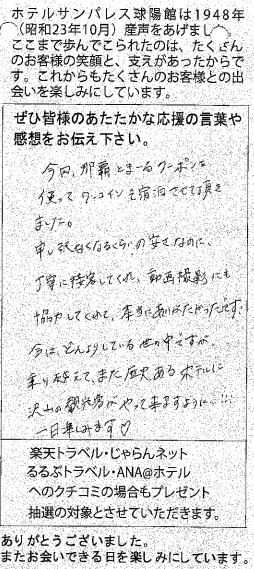 ホテルサンパレス球陽館は1948年
(昭和23年10月)産声をあげまし
ここまで歩んでこられたのは、たくさん
のお客様の笑顔と、支えがあったからで
す。これからもたくさんのお客様との出
会いを楽しみにしています。
ぜひ皆様のあたたかな応援の言葉や
感想をお伝え下さい。
今回、那覇とまーるクーポンを
使ってワンコインで宿泊させて頂き
ました。
申し訳なくなるくらいの安さなのに、
丁寧に接客してくれ、動画撮影にも
協力してくれて、本当にありがたかったです。
今は、どんよりしている世の中ですが、
乗り越えて、また歴史あるホテルに
沢山の観光客がやって来ますように…!!
楽しみます♡
楽天トラベル・じゃらんネット
るるぶトラベル・ANA@ホテル
へのクチコミの場合もプレゼント
抽選の対象とさせていただきます。
ありがとうございました。
またお会いできる日を楽しみにしています。